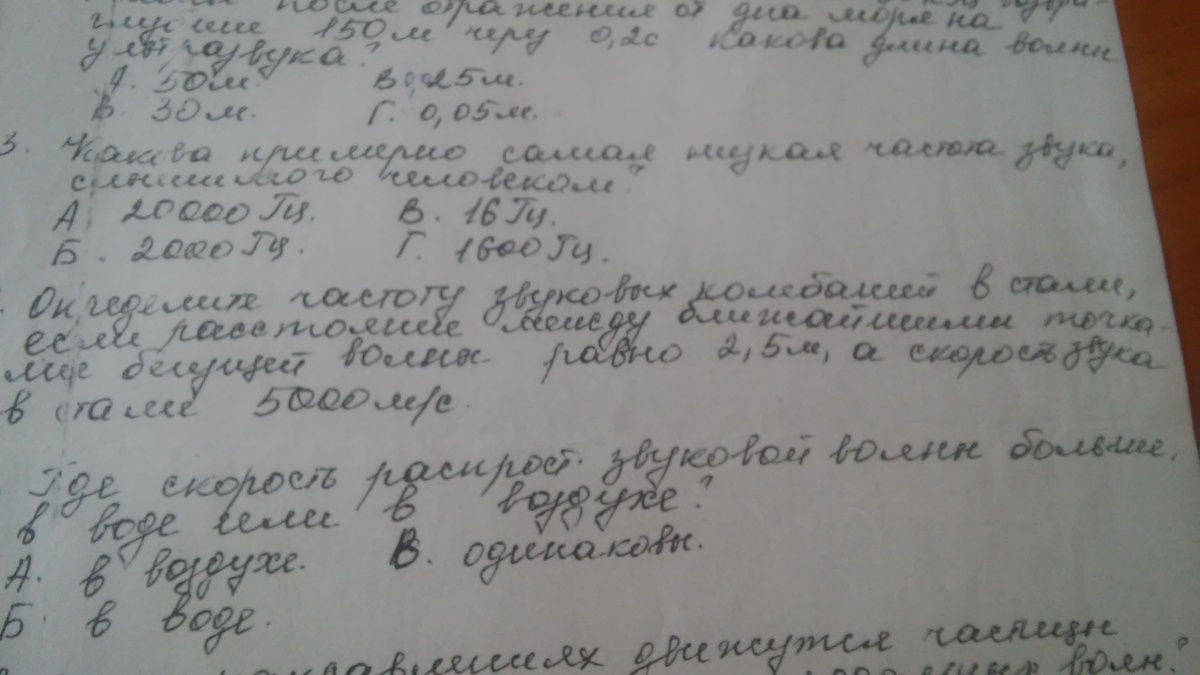 после отражения от дна моря на
глубине 150м через 0,2с Какова длина волны
ультразвука?
А. 50м. В. 0,25м.
Б. 30м. Г. 0,05м.
3. Какова примерно самая низкая частота звука,
слышимого человеком?
А 20000 Гц. В. 16 Гц.
Б. 2000 Гц. Г. 1600 Гц.
Определите частоту звуковых колебаний в стали,
если расстояние между ближайшими точка-
ми бегущей волны равно 2,5м, а скорость звука
в стали 5000 м/с.
Где скорость распрост. звуковой волны больше,
в воде или в воздухе?
А. в воздухе. В. одинаковы.
Б. в воде.
движутся частицы
волн?